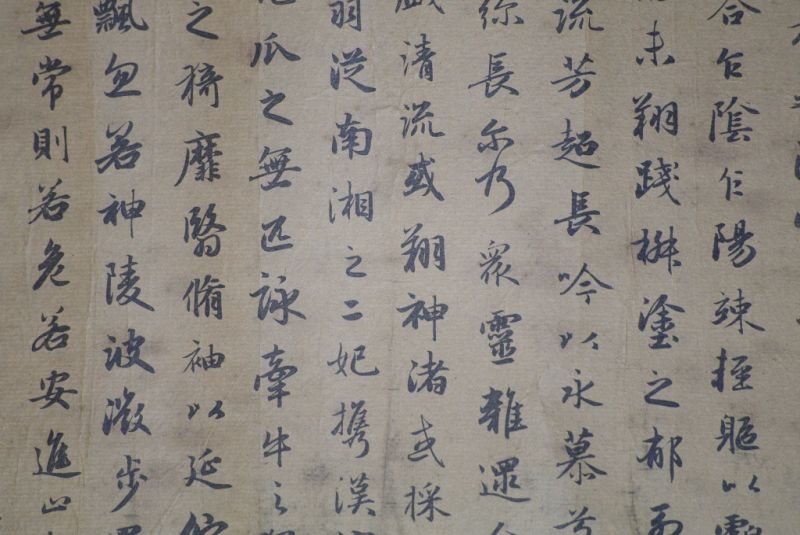 合乍陰乍陽竦輕軀以
未翔踐椒塗之郁
流芳超長吟以永慕兮
彌長爾乃眾靈雜遝
戲清流或翔神渚或採
羽從南湘之二妃攜漢
瓜之無匹詠牽牛之
之猗靡翳脩袖以延
飄忽若神陵波微步
無常則若危若安進止